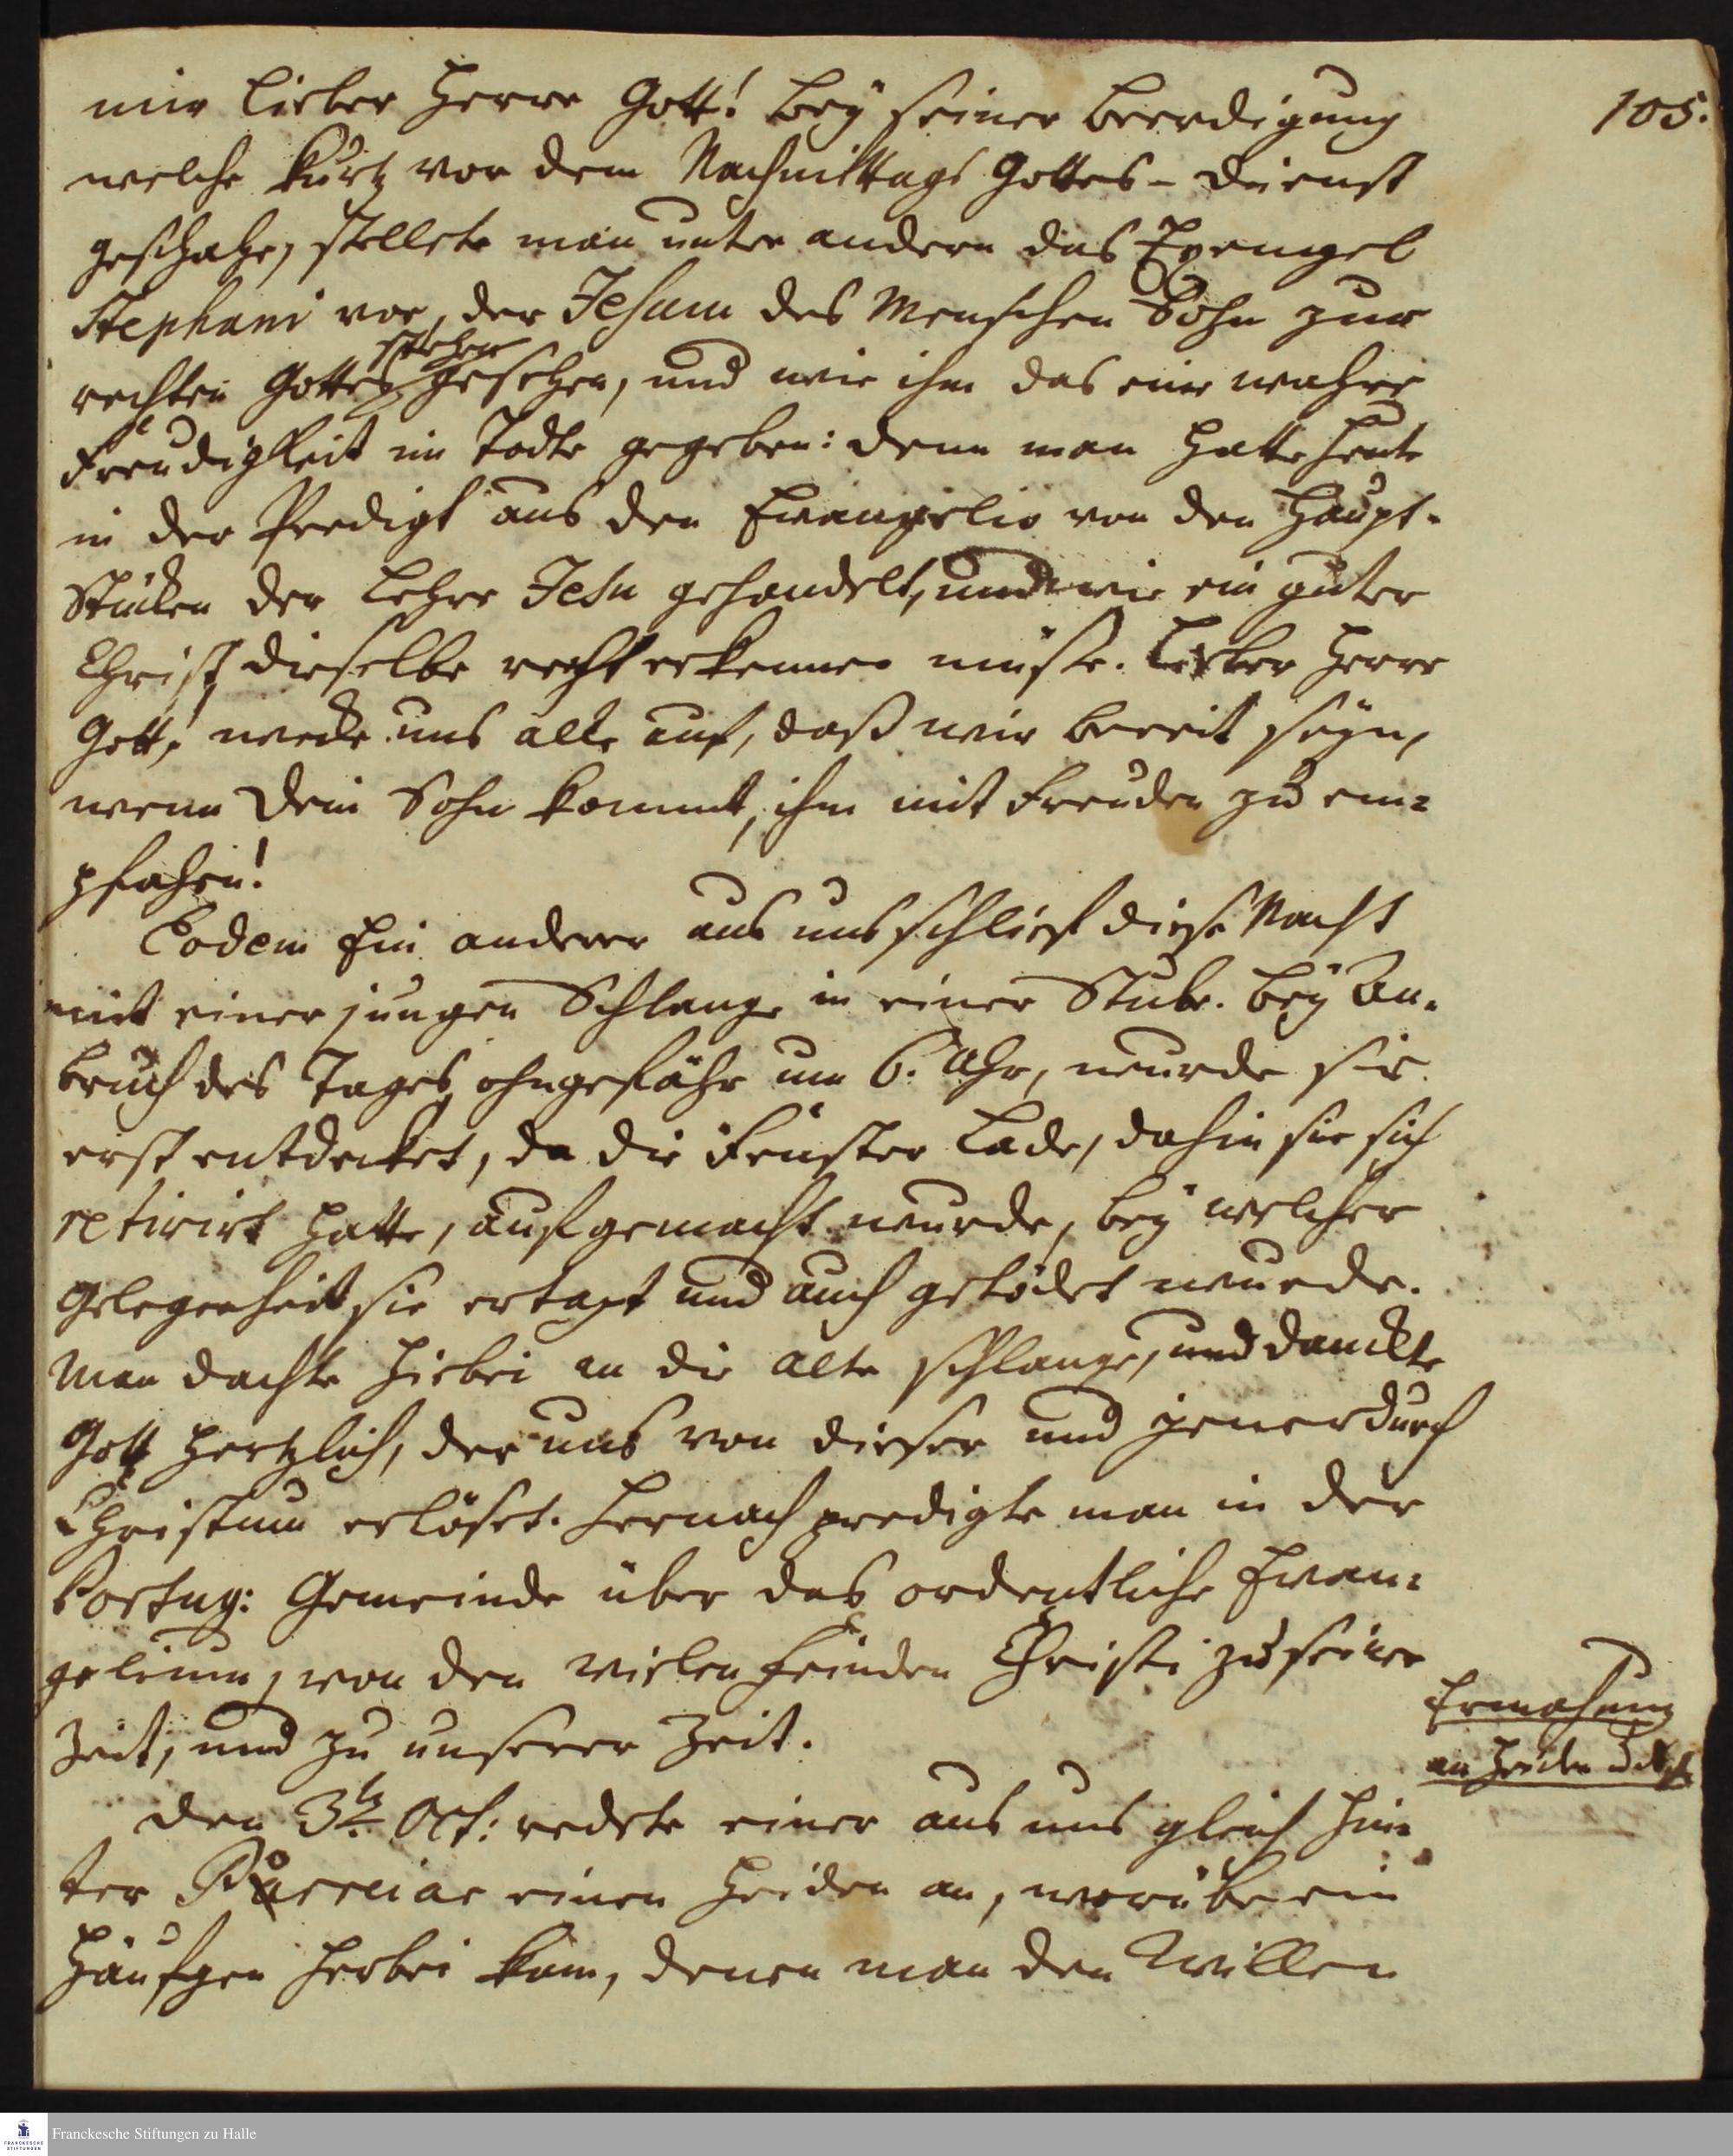 105.
mir lieber Herre Gott! Bey seiner Beerdigung
welche kurtz vor dem Nachmittags Gottes-Dienst
geschahe, stellete man unter andern das Exempel
Stephani vor, der Jesum des Menschen Sohn zur
rechten Gottes stehen gesehen, und wie ihm das eine wahre
Freudigkeit im Tode gegeben: denn man hatte heute
in der Predigt aus den Evangelio von den Haupt-
Stücken der Lehre Jesu gehandelt, und wie ein guter
Christ dieselbe recht erkennen müsse. Lieber Herre
Gott! wecke uns alle auf, daß wir bereit seyn,
wenn Dein Sohn kommt, ihm mit Freuden zu em=
pfahen!
Eodem Ein anderer aus uns schlief diese Nacht
mit einer jungen Schlange in einer Stube. Bey An-
bruch des Tages ohngefähr um 6. Uhr, wurde sie
erst entdecket, da die Fenster Lade, dahin sie sich
retirirt hatte, aufgemacht wurde, bey welcher
Gelegenheit sie ertapt und auch getödet wurde.
Man dachte hiebei an die alte Schlange, und danckte
Gott hertzlich, der uns von dieser und jener durch
Christum erlöset. Hernach predigte man in der
Portug: Gemeinde über das ordentliche Evan=
gelium, von den vielen Feinden Christi zu seiner
Zeit, und zu unserer Zeit.
Ermahnung
an Heiden
den 3ts. Oct: redete einer aus uns gleich hin=
ter Porreiar einen Heiden an, worüber ein
Häufgen herbei kam, denen man den Willen
Franckesche Stiftungen zu Halle